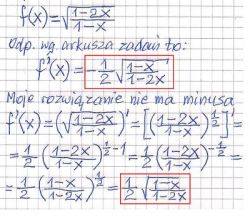 f(x) = √((1-2x)/(1-x))
Odp. wg. arkusza zadań to:
f'(x) = -1/2 √((1-x)/(1-2x))
Moje rozwiązanie nie ma minusa
f'(x) = (√((1-2x)/(1-x)))' = [((1-2x)/(1-x))^(1/2)]' =
= 1/2 ((1-2x)/(1-x))^(1/2 - 1) = 1/2 ((1-2x)/(1-x))^(-1/2) =
= 1/2 ((1-x)/(1-2x))^(1/2) = 1/2 √((1-x)/(1-2x))